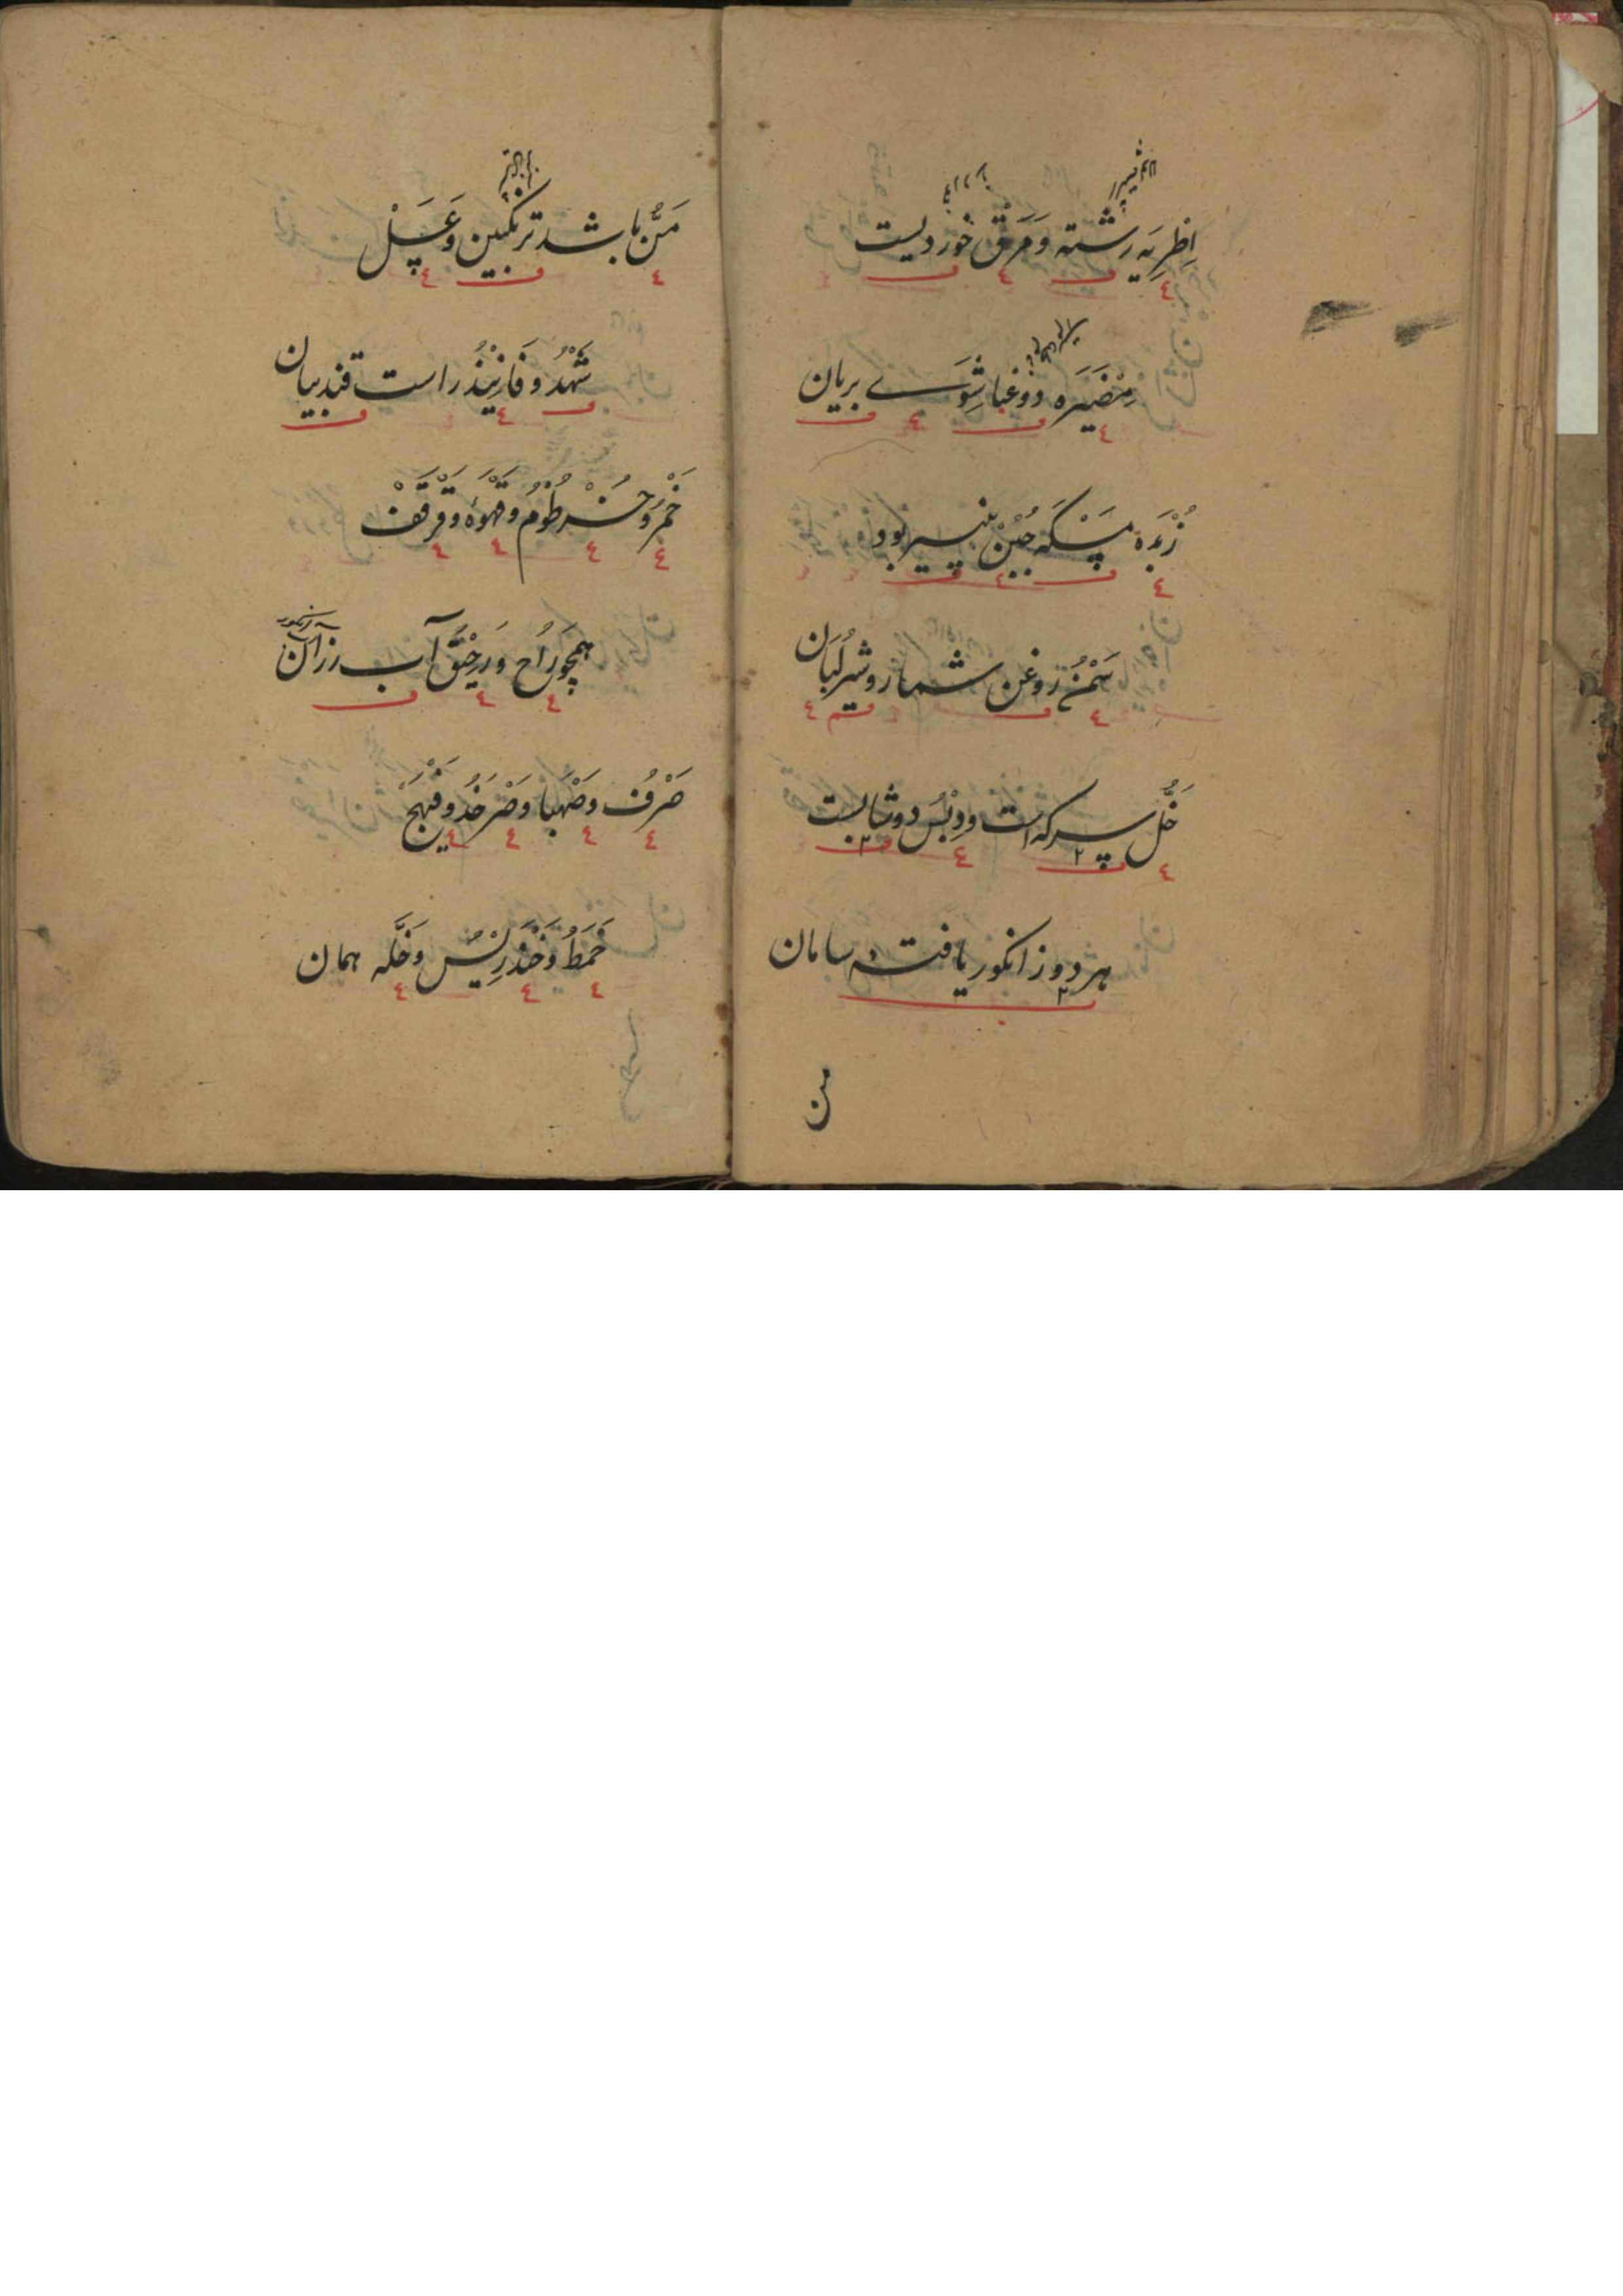 اِطْرِيَه رشته وَ مَرَق خورديست
مِضَيَره دوغبا شِوَے بريان
زُبْدَه مسكه جُبْن پنير بود
سَمْنُ روغن شمار و شير لَبَان
خَلُّ سركه است و دِبْسُ دوشابست
هر دو ز انكور يافته سامان
من
مَنُّ باشد ترنكبين وَ عَسَلْ
شَهْدُ و فَانِيْذُ راست قند بيان
خَمْرُ و خُرْطُوْمُ و قَهْوَه و قَرْقَفْ
همچو رَاح و رَحِيْقُ آب رزان
صَرْفُ و صَهْبا و صَرْخَدُ و فَيْهَجْ
خَمَطُ و خَنْدَرِيْسُ و خَلَّه همان